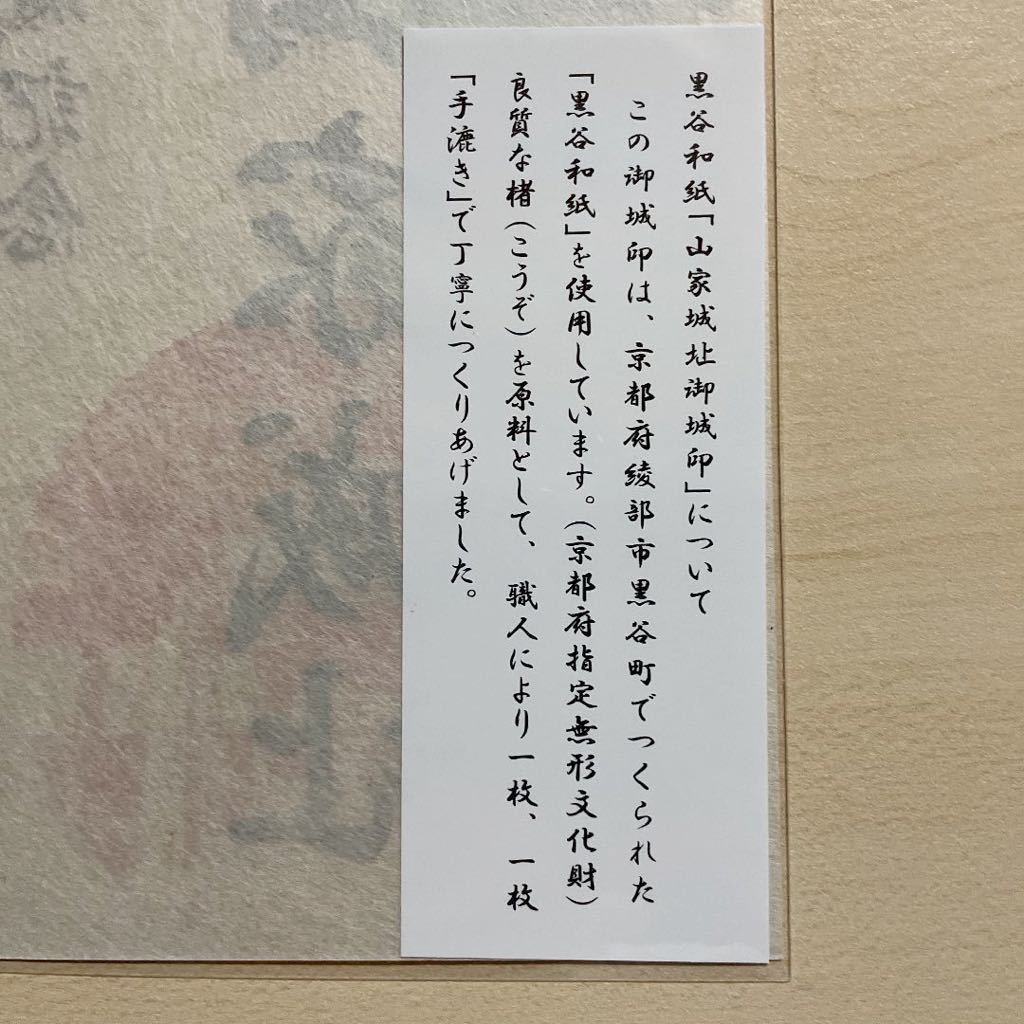 黒谷和紙「山家城址御城印」について
この御城印は、京都府綾部市黒谷町でつくられた
「黒谷和紙」を使用しています。（京都府指定無形文化財）
良質な楮（こうぞ）を原料として、職人により一枚、一枚
「手漉き」で丁寧につくりあげました。